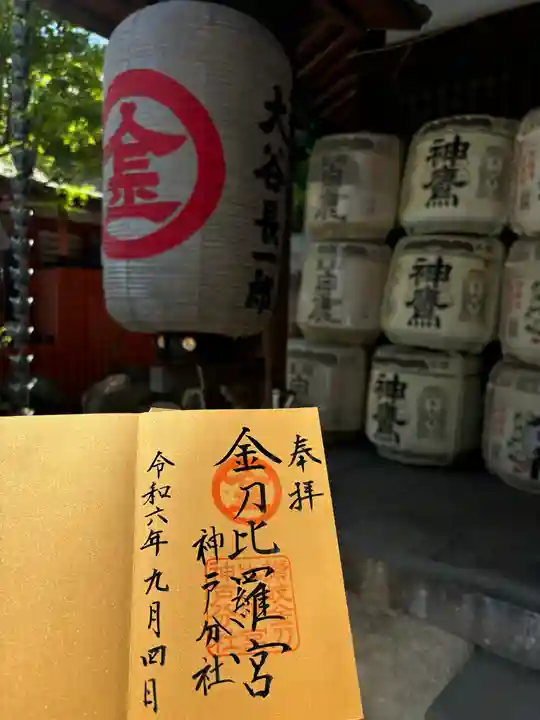 金
大谷長一郎
神鷹
神鷹
神鷹
奉拝
金刀比羅宮
神戸分社
令和六年九月四日